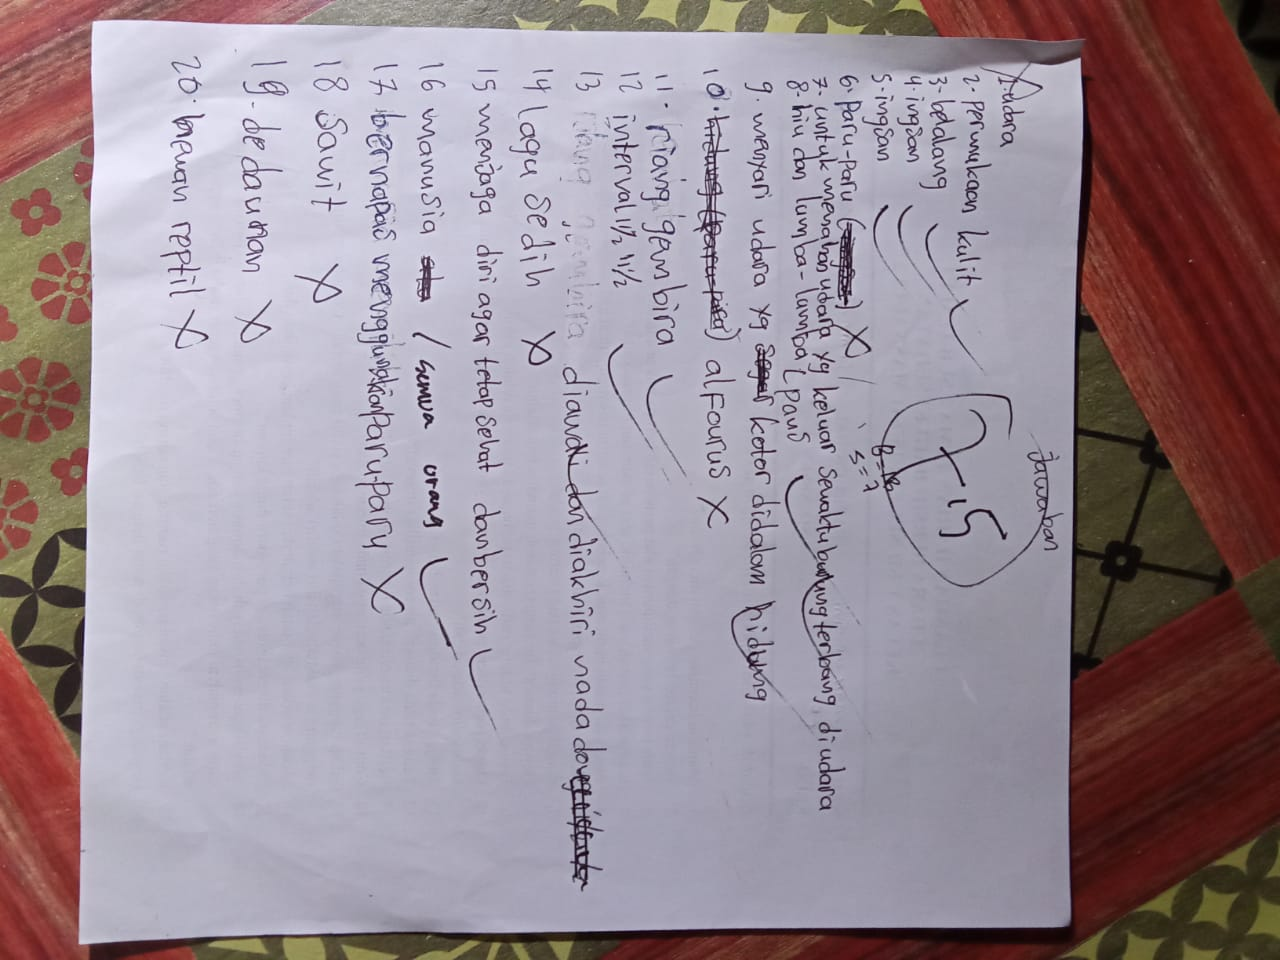 Jawaban
7,5
B = 13
S = 7
1. udara
2. permukaan kulit
3. belalang
4. ingsan
5. ingsan
6. Paru-Paru
7. untuk menahan udara yg keluar sewaktu burung terbang diudara
8. hiu dan lumba-lumba / paus
9. menyari udara yg kotor didalam hidung
10. alfourus
11. riang gembira
12 interval 1 1/2 1 1/2
13 diawali dan diakhiri nada do
14 lagu sedih
15 menjaga diri agar tetap sehat dan bersih
16 manusia / semua orang
17 bernapas menggunakan Paru-Paru
18 Sawit
19. dedaunan
20. hewan reptil